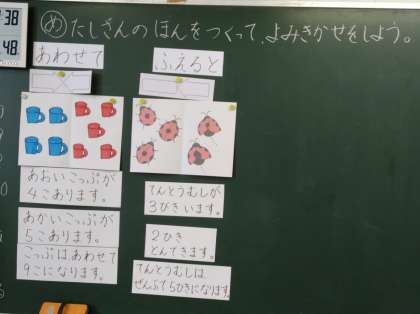 :38
48.
め たしざんのほんをつくって、よみきかせをしよう。
あわせて
ふえると
あおいこっぷが
4こあります。
あかいこっぷが
5こあります。
こっぷはあわせて
9こになります。
てんとうむしが
3びきいます。
2ひき
とんできます。
てんとうむしは
ぜんぶで5ひきになります。